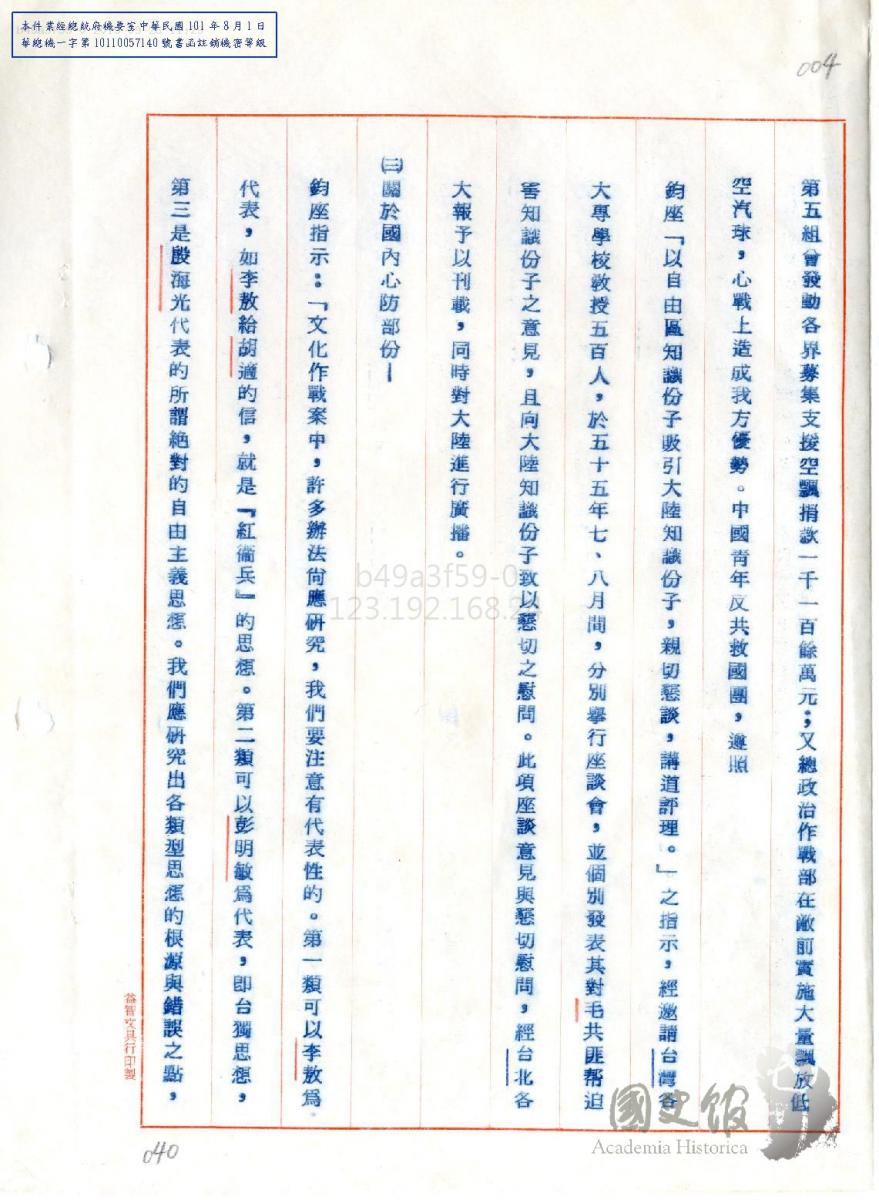 本件業經總統府機要室中華民國101年8月1日
華總機一字第10110057140號書函註銷機密等級
004
第五組曾發動各界募集支援空飄捐款一千一百餘萬元；又總政治作戰部在敵前實施大量飄放低
空汽球，心戰上造成我方優勢。中國青年反共救國團，遵照
鈞座「以自由區知識份子吸引大陸知識份子，親切懇談，講道評理。」之指示，經邀請台灣各
大專學校教授五百人，於五十五年七、八月間，分別舉行座談會，並個別發表其對毛共匪幫迫
害知識份子之意見，且向大陸知識份子致以懇切之慰問。此項座談意見與懇切慰問，經台北各
大報予以刊載，同時對大陸進行廣播。
㈢關於國內心防部份—
鈞座指示：「文化作戰案中，許多辦法尙應研究，我們要注意有代表性的。第一類可以李敖爲
代表，如李敖給胡適的信，就是『紅衞兵』的思想。第二類可以彭明敏爲代表，卽台獨思想，
第三是殷海光代表的所謂絕對的自由主義思想。我們應研究出各類型思想的根源與錯誤之點，
益智文具行印製
040
b49a3f59-0
123.192.168.24
國史館
Academia Historica